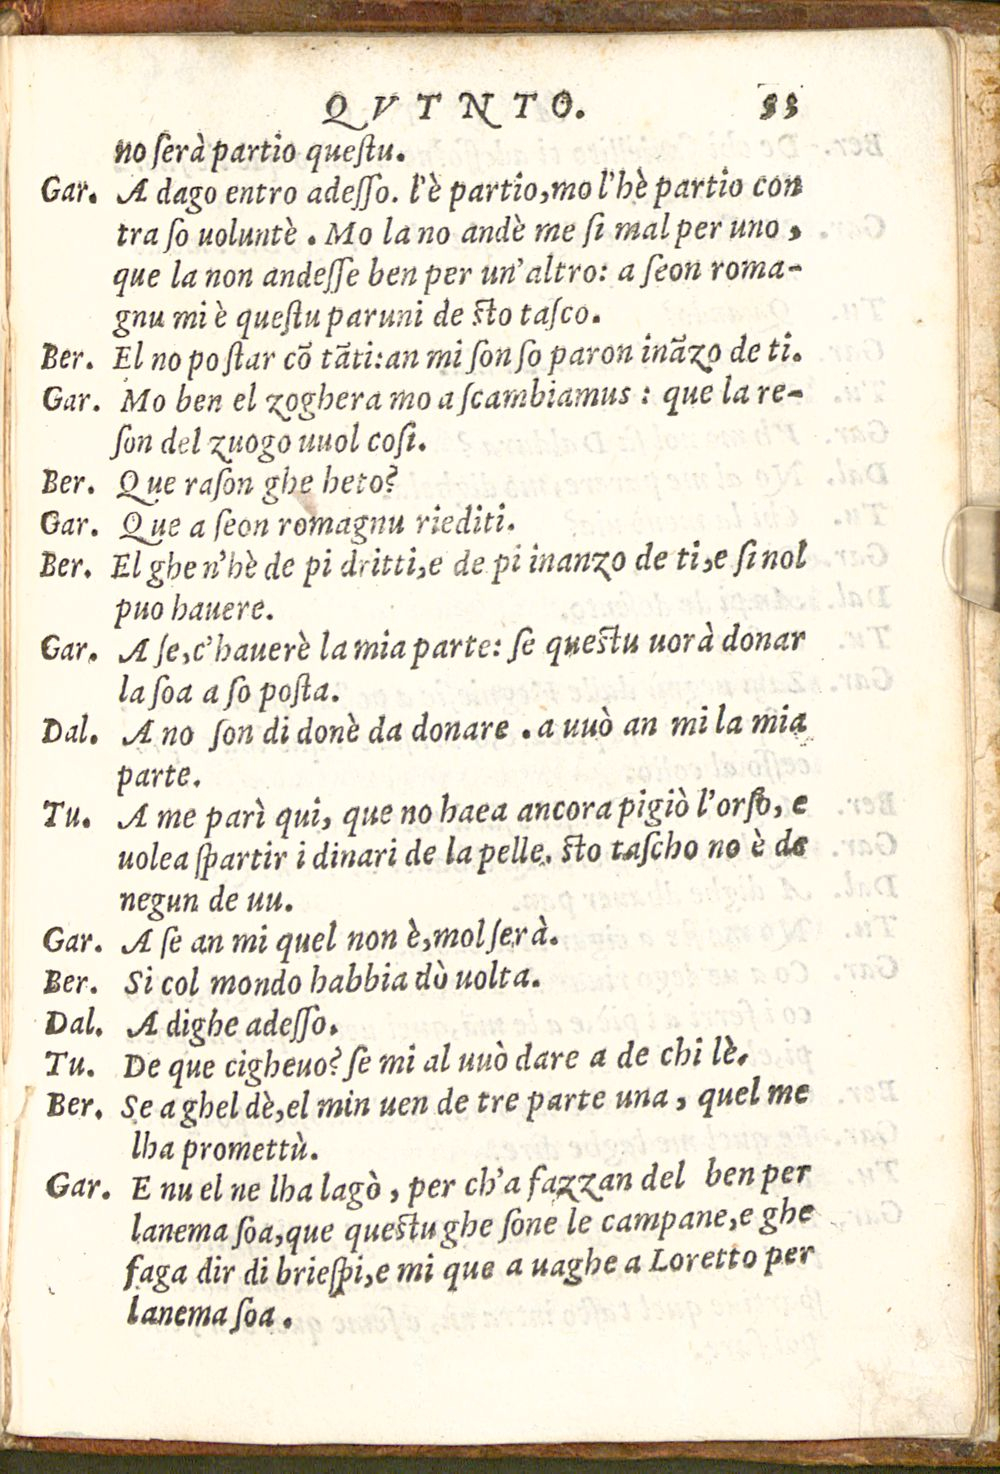 QVTNTO. 33
no ſerà partio queſtu.
Gar. A dago entro adeſſo. l'è partio, mo l'hè partio con
tra ſo uoluntè. Mo la no andè me ſi mal per uno,
que la non andeſſe ben per un'altro: a ſeon roma-
gnu mi è queſtu paruni de ſto taſco.
Ber. El no po ſtar cõ tãti: an mi ſon ſo paron inãzo de ti.
Gar. Mo ben el zoghera mo a ſcambiamus: que la re-
ſon del zuogo uuol coſi.
Ber. Que raſon ghe heto?
Gar. Que a ſeon romagnu riediti.
Ber. El ghe n'hè de pi dritti, e de pi inanzo de ti, e ſi nol
puo hauere.
Gar. A ſe, c'hauerè la mia parte: ſe queſtu uorà donar
la ſoa a ſo poſta.
Dal. A no ſon di donè da donare. a uuò an mi la mia
parte.
Tu. A me parì qui, que no haea ancora pigiò l'orſo, e
uolea ſpartir i dinari de la pelle. ſto taſcho no è de
negun de uu.
Gar. A ſe an mi quel non è, mol ſerà.
Ber. Si col mondo habbia dò uolta.
Dal. A dighe adeſſo.
Tu. De que cigheuo? ſe mi al uuò dare a de chi lè.
Ber. Se a ghel dè, el min uen de tre parte una, quel me
lha promettù.
Gar. E nu el ne lha lagò, per ch'a fazzan del ben per
lanema ſoa, que queſtu ghe ſone le campane, e ghe
faga dir di brieſpi, e mi que a uaghe a Loretto per
lanema ſoa.